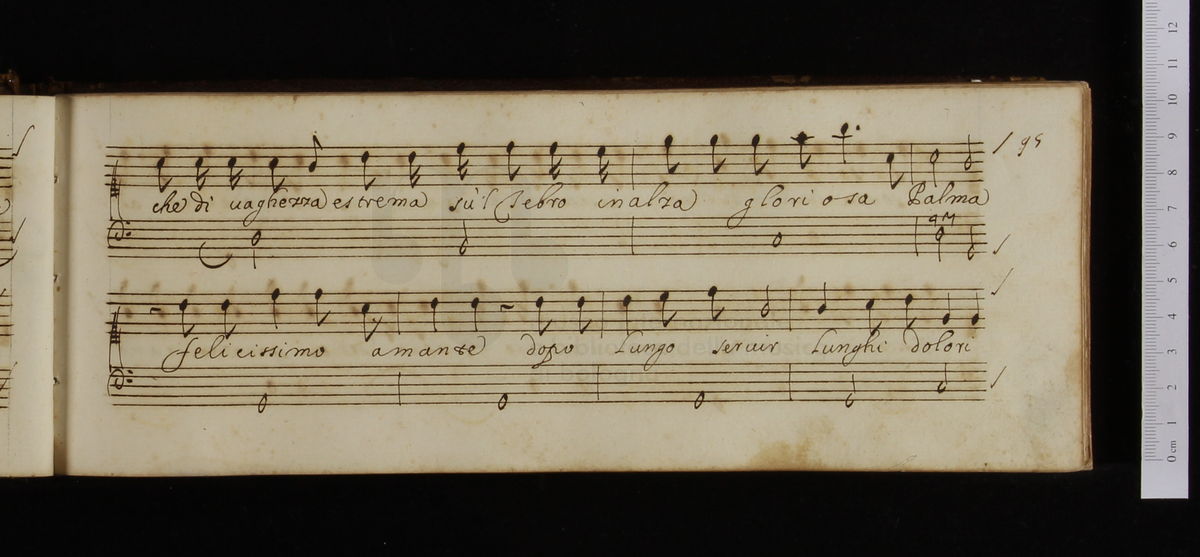 95
che di uaghezza estrema su'l Tebro inalza gloriosa Palma
felicissimo amante dopo lungo seruir lunghi dolori
0 cm 1 2 3 4 5 6 7 8 9 10 11 12